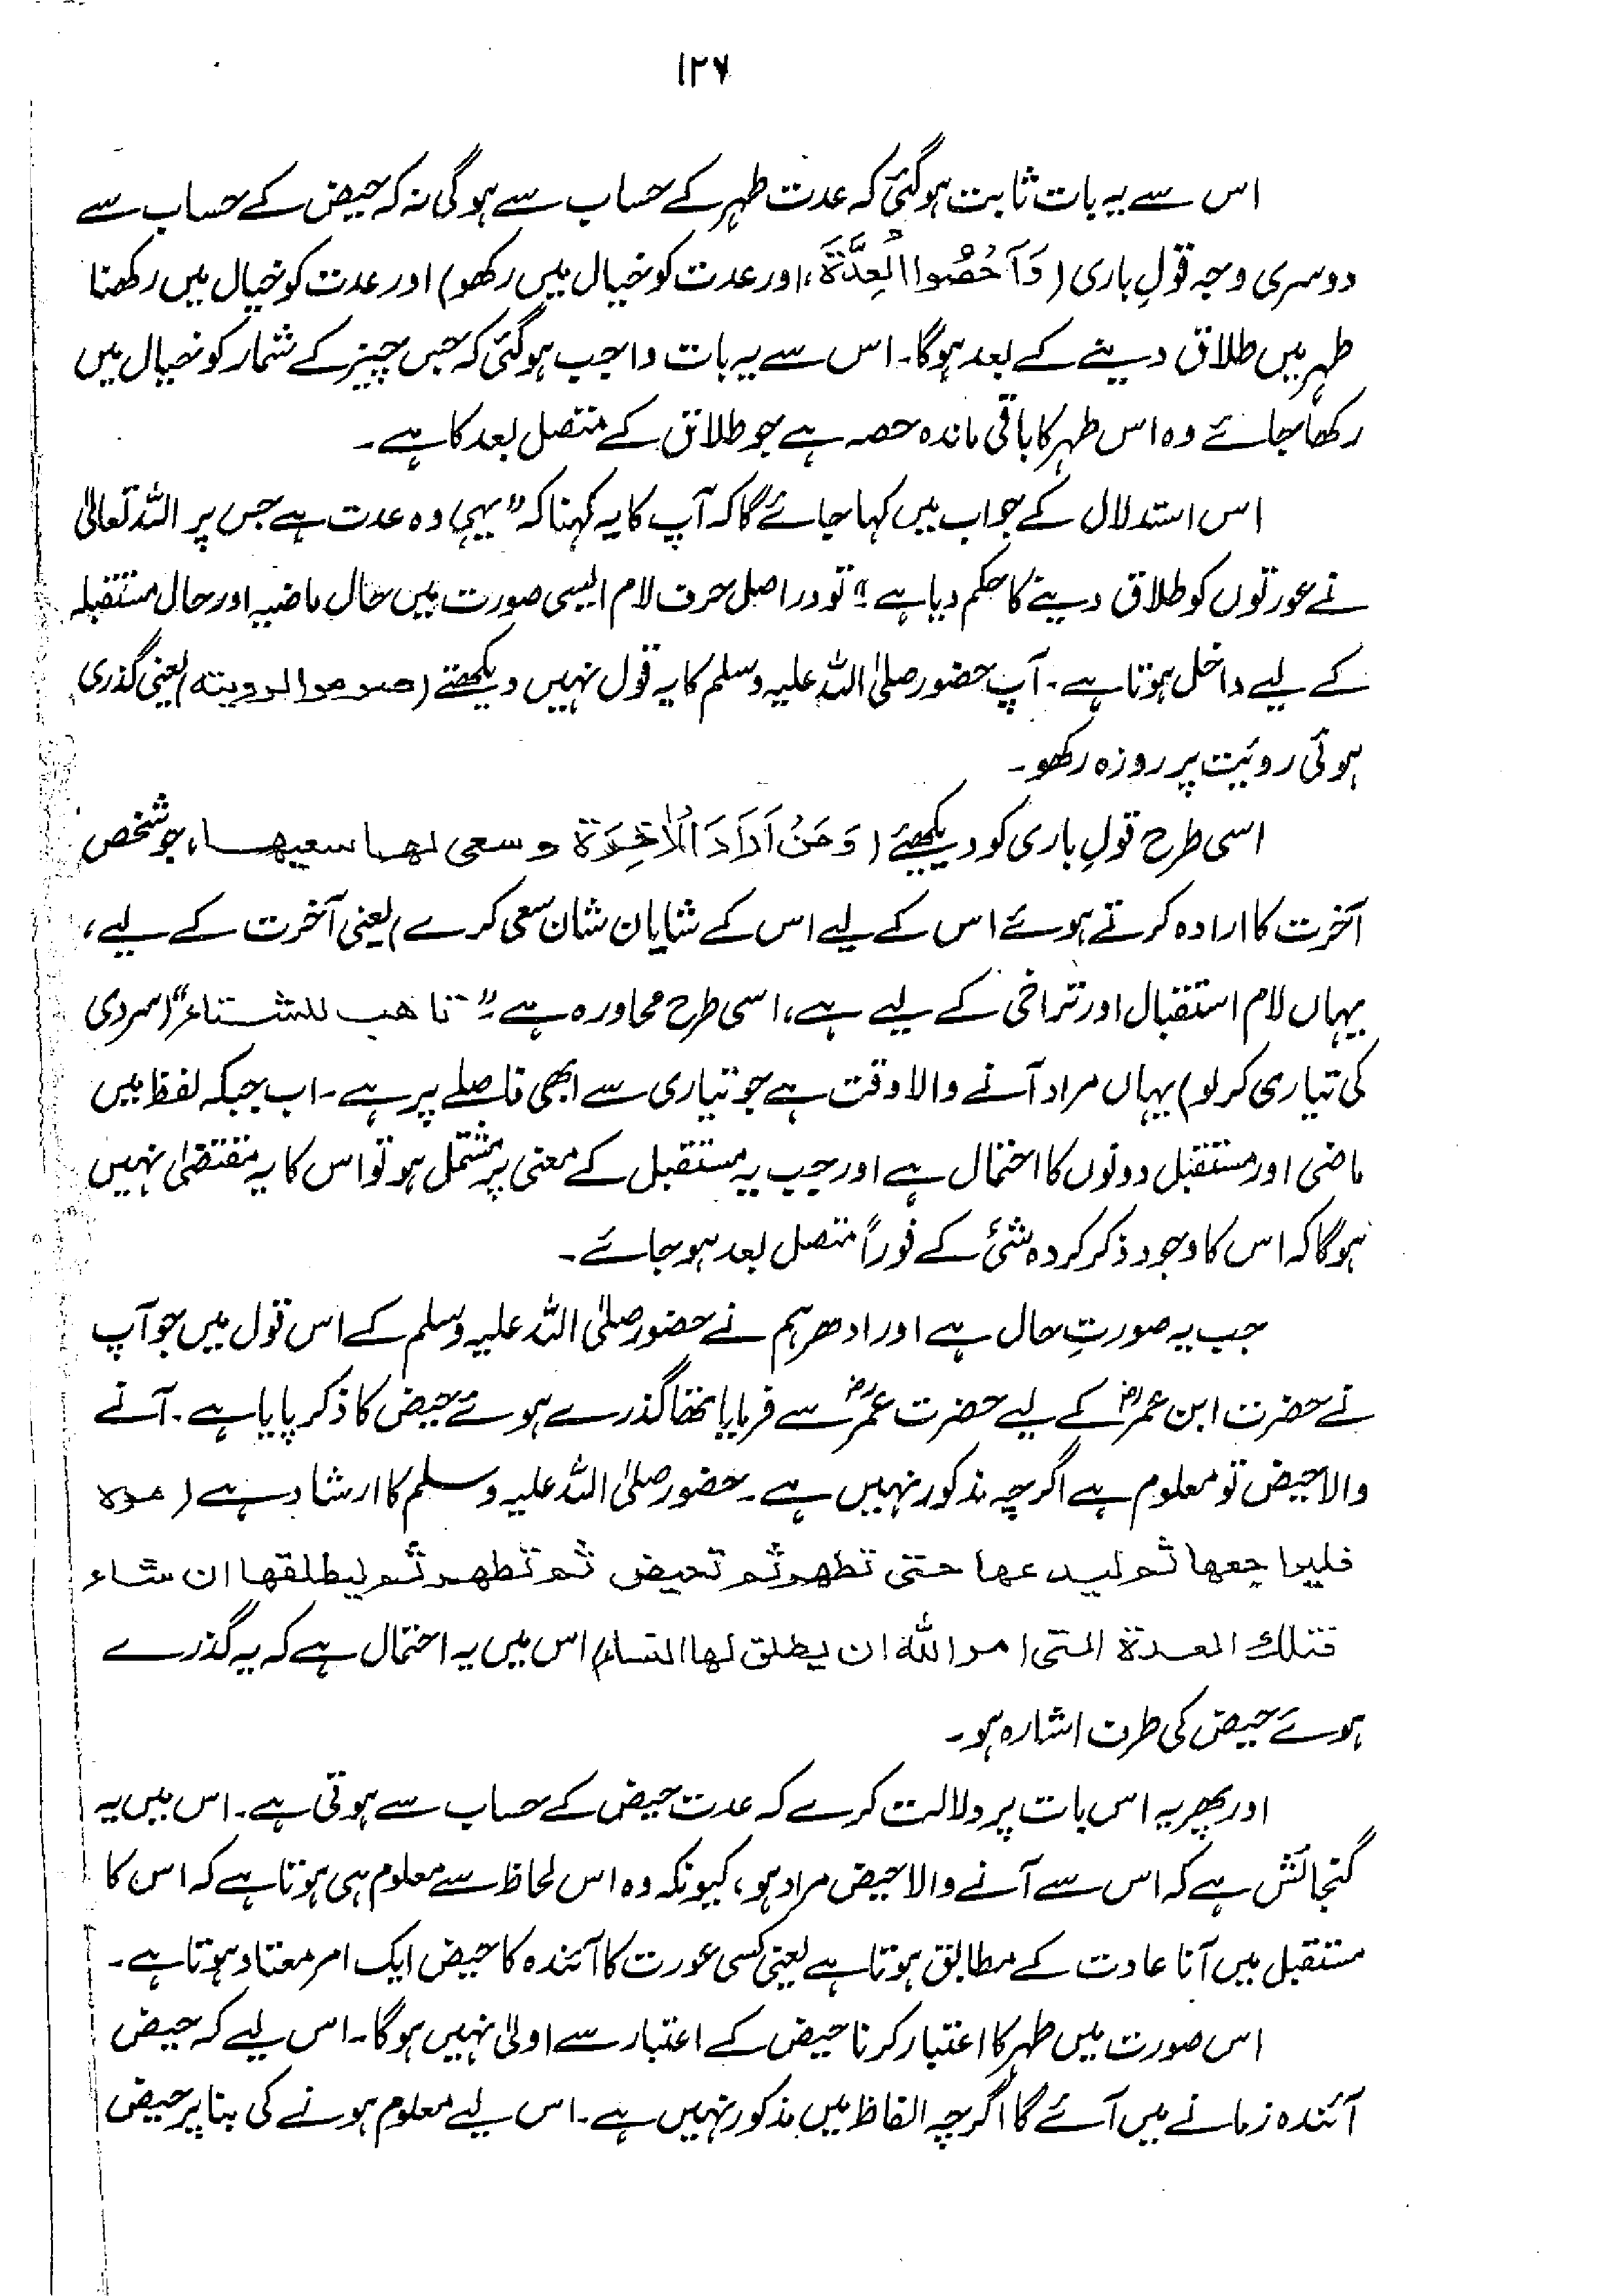 ۱۲۷
اس سے یہ بات ثابت ہوگئی کہ عدت طہر کے حساب سے ہوگی نہ کہ حیض کے حساب سے
دوسری وجہ قولِ باری (وَاَحْصُوا الْعِدَّةَ، اور عدت کو خیال میں رکھو) اور عدت کو خیال میں رکھنا
طہر میں طلاق دینے کے بعد ہوگا۔ اس سے یہ بات واجب ہوگئی کہ جس چیز کے شمار کو خیال میں
رکھا جائے وہ اس طہر کا باقی ماندہ حصہ ہے جو طلاق کے متصل بعد کا ہے۔
اس استدلال کے جواب میں کہا جائے گا کہ آپ کا یہ کہنا کہ "یہی وہ عدت ہے جس پر اللہ تعالیٰ
نے عورتوں کو طلاق دینے کا حکم دیا ہے" تو دراصل حرف لام ایسی صورت میں حال ماضیہ اور حال مستقبلہ
کے لیے داخل ہوتا ہے۔ آپ حضور صلی اللہ علیہ وسلم کا یہ قول نہیں دیکھتے (صوموا لرویته) یعنی گذری
ہوئی روئیت پر روزہ رکھو۔
اسی طرح قولِ باری کو دیکھئے (وَمَنْ اَرَادَ الْاٰخِرَةَ وسعی لها سعیها، جو شخص
آخرت کا ارادہ کرتے ہوئے اس کے لیے اس کے شایان شان سعی کرے) یعنی آخرت کے لیے،
یہاں لام استقبال اور تراخی کے لیے ہے، اسی طرح محاورہ ہے "تاهب للشتاء" (سردی
کی تیاری کرلو) یہاں مراد آنے والا وقت ہے جو تیاری سے ابھی فاصلے پر ہے۔ اب جبکہ لفظ میں
ماضی اور مستقبل دونوں کا احتمال ہے اور جب یہ مستقبل کے معنی پر مشتمل ہو تو اس کا یہ مقتضیٰ نہیں
ہوگا کہ اس کا وجود ذکر کردہ شئ کے فوراً متصل بعد ہو جائے۔
جب یہ صورتِ حال ہے اور ادھر ہم نے حضور صلی اللہ علیہ وسلم کے اس قول میں جو آپ
نے حضرت ابن عمرؓ کے لیے حضرت عمرؓ سے فرمایا تھا گذرے ہوئے حیض کا ذکر پایا ہے۔ آنے
والا حیض تو معلوم ہے اگرچہ مذکور نہیں ہے۔ حضور صلی اللہ علیہ وسلم کا ارشاد ہے (مره
فلیراجعها ثم لیدعها حتی تطهر ثم تحیض ثم تطهر ثم لیطلقها ان شاء
فتلك العدة التی امر الله ان یطلق لها النساء) اس میں یہ احتمال ہے کہ یہ گذرے
ہوئے حیض کی طرف اشارہ ہو۔
اور پھر یہ اس بات پر دلالت کرے کہ عدت حیض کے حساب سے ہوتی ہے۔ اس میں یہ
گنجائش ہے کہ اس سے آنے والا حیض مراد ہو، کیونکہ وہ اس لحاظ سے معلوم ہی ہوتا ہے کہ اس کا
مستقبل میں آنا عادت کے مطابق ہوتا ہے یعنی کسی عورت کا آئندہ کا حیض ایک امر معتاد ہوتا ہے۔
اس صورت میں طہر کا اعتبار کرنا حیض کے اعتبار سے اولیٰ نہیں ہوگا۔ اس لیے کہ حیض
آئندہ زمانے میں آئے گا اگرچہ الفاظ میں مذکور نہیں ہے۔ اس لیے معلوم ہونے کی بنا پر حیض